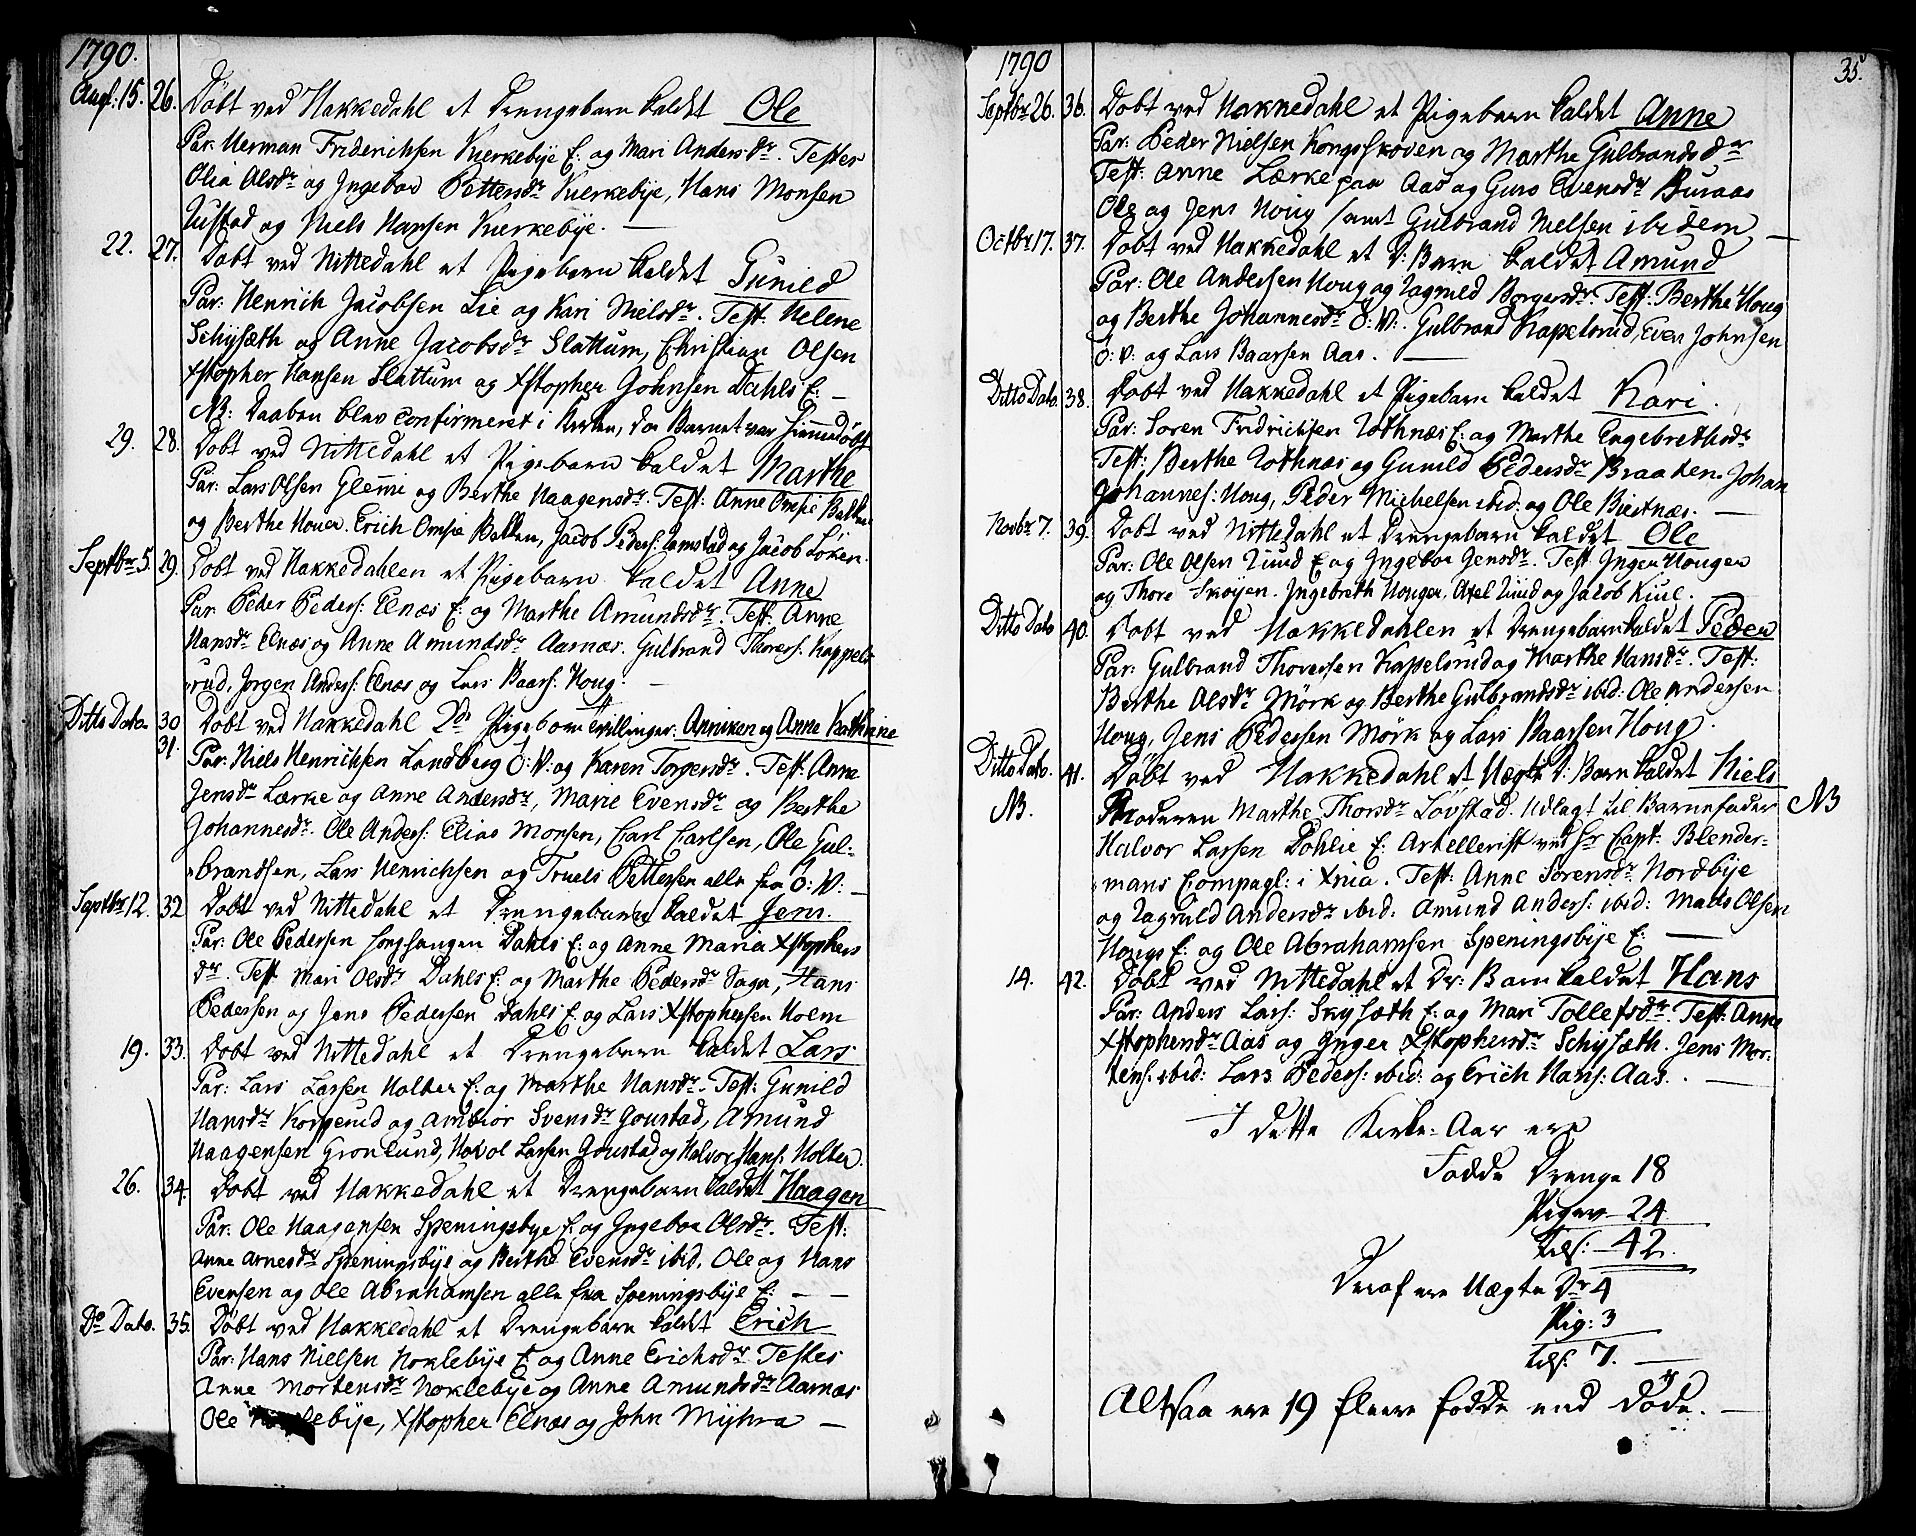 1790.
Augs: 15. 26. Döbt ved Hakkedahl et Drengebarn kaldet Ole
Par: Herman Friderichsen Kierkebye E: og Mari Andersdr. Testes
Olia Olsdr og Ingebor Pettersdr Kierkebye, Hans Monsen
Rustad og Niels Hansen Kierkebye. —
22. 27. Döbt ved Nittedahl et Pigebarn kaldet Gunild
Par: Henrich Jacobsen Lie og Kari Nielsdr. Test: Helene
Schysæth og Anne Jacobsdr Slattum, Christian Olsen
Xstopher Hansen Slattum og Xstopher Johnsen Dahls E: —
NB: Daaben blev confirmeret i Kirken, da Barnet var Hiemmedöbt
29. 28. Döbt ved Nittedahl et Pigebarn kaldet Marthe
Par: Lars Olsen Glemmi og Berthe Haagensdr. Test: Anne Omsie Bakken
og Berthe Houer. Erich Omsie Bakken, Jacob Peders: Lamstad og Jacob Löken.
Septbr 5. 29. Döbt ved Hakkedahlen et Pigebarn kaldet Anne
Par: Peder Peders: Elnæs E: og Marthe Amundsdr. Test: Anne
Hansdr Elnæs og Anne Amundsdr Aarnæs. Gulbrand Thoress: Kappels
rud, Jorgen Anders: Elnæs og Lars Baars: Houg. —
Ditto Dato. 30 Döbt ved Hakkedahl 2de Pigeborn Tvillinger: Anniken og Anne Kathrine
31. Par: Niels Henrichsen Landberg O: V: og Karen Torgersdr. Test: Anne
Jensdr Lærke og Anne Andersdr, Marie Evensdr og Berthe
Johannesdr. Ole Anders: Elias Monsen, Carl Carlsen, Ole Gul-
brandsen, Lars Henrichsen og Truels Pettersen alle fra O: V: —
Septbr 12. 32 Döbt ved Nittedahl et Drengebarn kaldet Jens.
Par: Ole Pedersen Dahls E: og Anne Maria Xstophers
dr. Test: Mari Olsdr Dahls E: og Marthe Pedersdr Dagr, Hans
Pedersen og Jens Pedersen Dahls E og Lars Xstophersen Holm
19. 33. Döbt ved Nittedahl et Drengebarn kaldet Lars
Par: Lars Larsen Holter E: og Marthe Hansdr. Test: Gunild
Hansdr Korperud og Ambior Svensdr Goustad, Amund
Haagensen Gronlund, Hovol Larsen Goustad og Halvor Hans: Holter.
26. 34. Döbt ved Hakkedahl et Drengebarn kaldet Haagen
Par: Ole Haagensen Speningsbye E: og Ingebor Olsdr. Test:
Anne Arnesdr Speningsbye og Berthe Evensdr ibid. Ole og Hans
Evensen og Ole Abrahamsen alle fra Speningsbye E: —
Do Dato. 35. Döbt ved Hakkedahl et Drengebarn kaldet Erich
Par: Hans Nielsen Noklebye E og Anne Erichsdr. Testes
Anne Mortensdr Noklebye og Anne Amundsdr Aarnæs
Ole Noklebye, Xstopher Elnæs og John Myhra —
1790 35.
Septbr 26. 36. Döbt ved Hakkedahl et Pigebarn kaldet Anne
Par: Peder Nielsen Kongsskoven og Marthe Gulbrandsdr
Test: Anne Lærke paa Aas og Guro Evensdr Buraas
Ole og Jens Houg samt Gulbrand Nielsen ibidem —
Octbr 17. 37. Döbt ved Hakkedahl et D: Barn kaldet Amund
Par: Ole Andersen Houg og Ragnild Borgersdr. Test: Berthe Houg
og Berthe Johannesdr O: V: Gulbrand Kapelsrud, Even Johnsen
O: V: og Lars Baarsen Aas. —
Ditto Dato. 38. Döbt ved Hakkedahl et Pigebarn kaldet Kari.
Par: Soren Fridrichsen Rothnæs E: og Marthe Engebrethsdr
Test: Berthe Rothnæs og Gunild Pedersdr Braaten. Johan
Johannes: Houg, Peder Michelsen ibid: og Ole Biertnæs. —
Novbr 7. 39. Döbt ved Nittedahl et Drengebarn kaldet Ole
Par: Ole Olsen Ruud E og Ingebor Jensdr. Test: Inger Hougen
og Thore Skoyen. Ingebreth Hougen, Axel Ruud og Jacob Kiul.
Ditto Dato 40. Döbt ved Hakkedahlen et Drengebarn kaldet Peder
Par: Gulbrand Thoresen Kapelsrud og Marthe Hansdr. Test:
Berthe Olsdr Mörk og Berthe Gulbrandsdr ibid: Ole Andersen
Houg, Jens Pedersen Mörk og Lars Baarsen Houg.
Ditto Dato. 41. Döbt ved Hakkedahl et Uægte D: Barn kaldet Niels
NB. Moderen Marthe Thorsdr Lövstad. Udlagt til Barnefader NB
Halvor Larsen Dohlie E: Artellerist ved Hr Capt: Blender-
mans Compagl: i Xnia. Test: Anne Sörensdr Nordbye
og Ragnild Andersdr ibid: Amund Anders: ibid: Mads Olsen
Hougs E: og Ole Abrahamsen Speningsbye E: —
14. 42. Döbt ved Nittedahl et Dr: Barn kaldet Hans
Par: Anders Lars: Skysæth E: og Mari Tollefsdr. Test: Anne
Xstophersdr Aas og Inger Xstophersdr Schysæth. Jens Mor-
tens: ibid: Lars Peders: ibid: og Erich Hans: Aas. —
I dette Kirke-Aar ere
Födde Drenge 18
Piger 24
Tils: 42.
Deraf ere Uægte Dr 4
Pig: 3
Tils: 7. —
Altsaa ere 19 fleere födde end döde. —